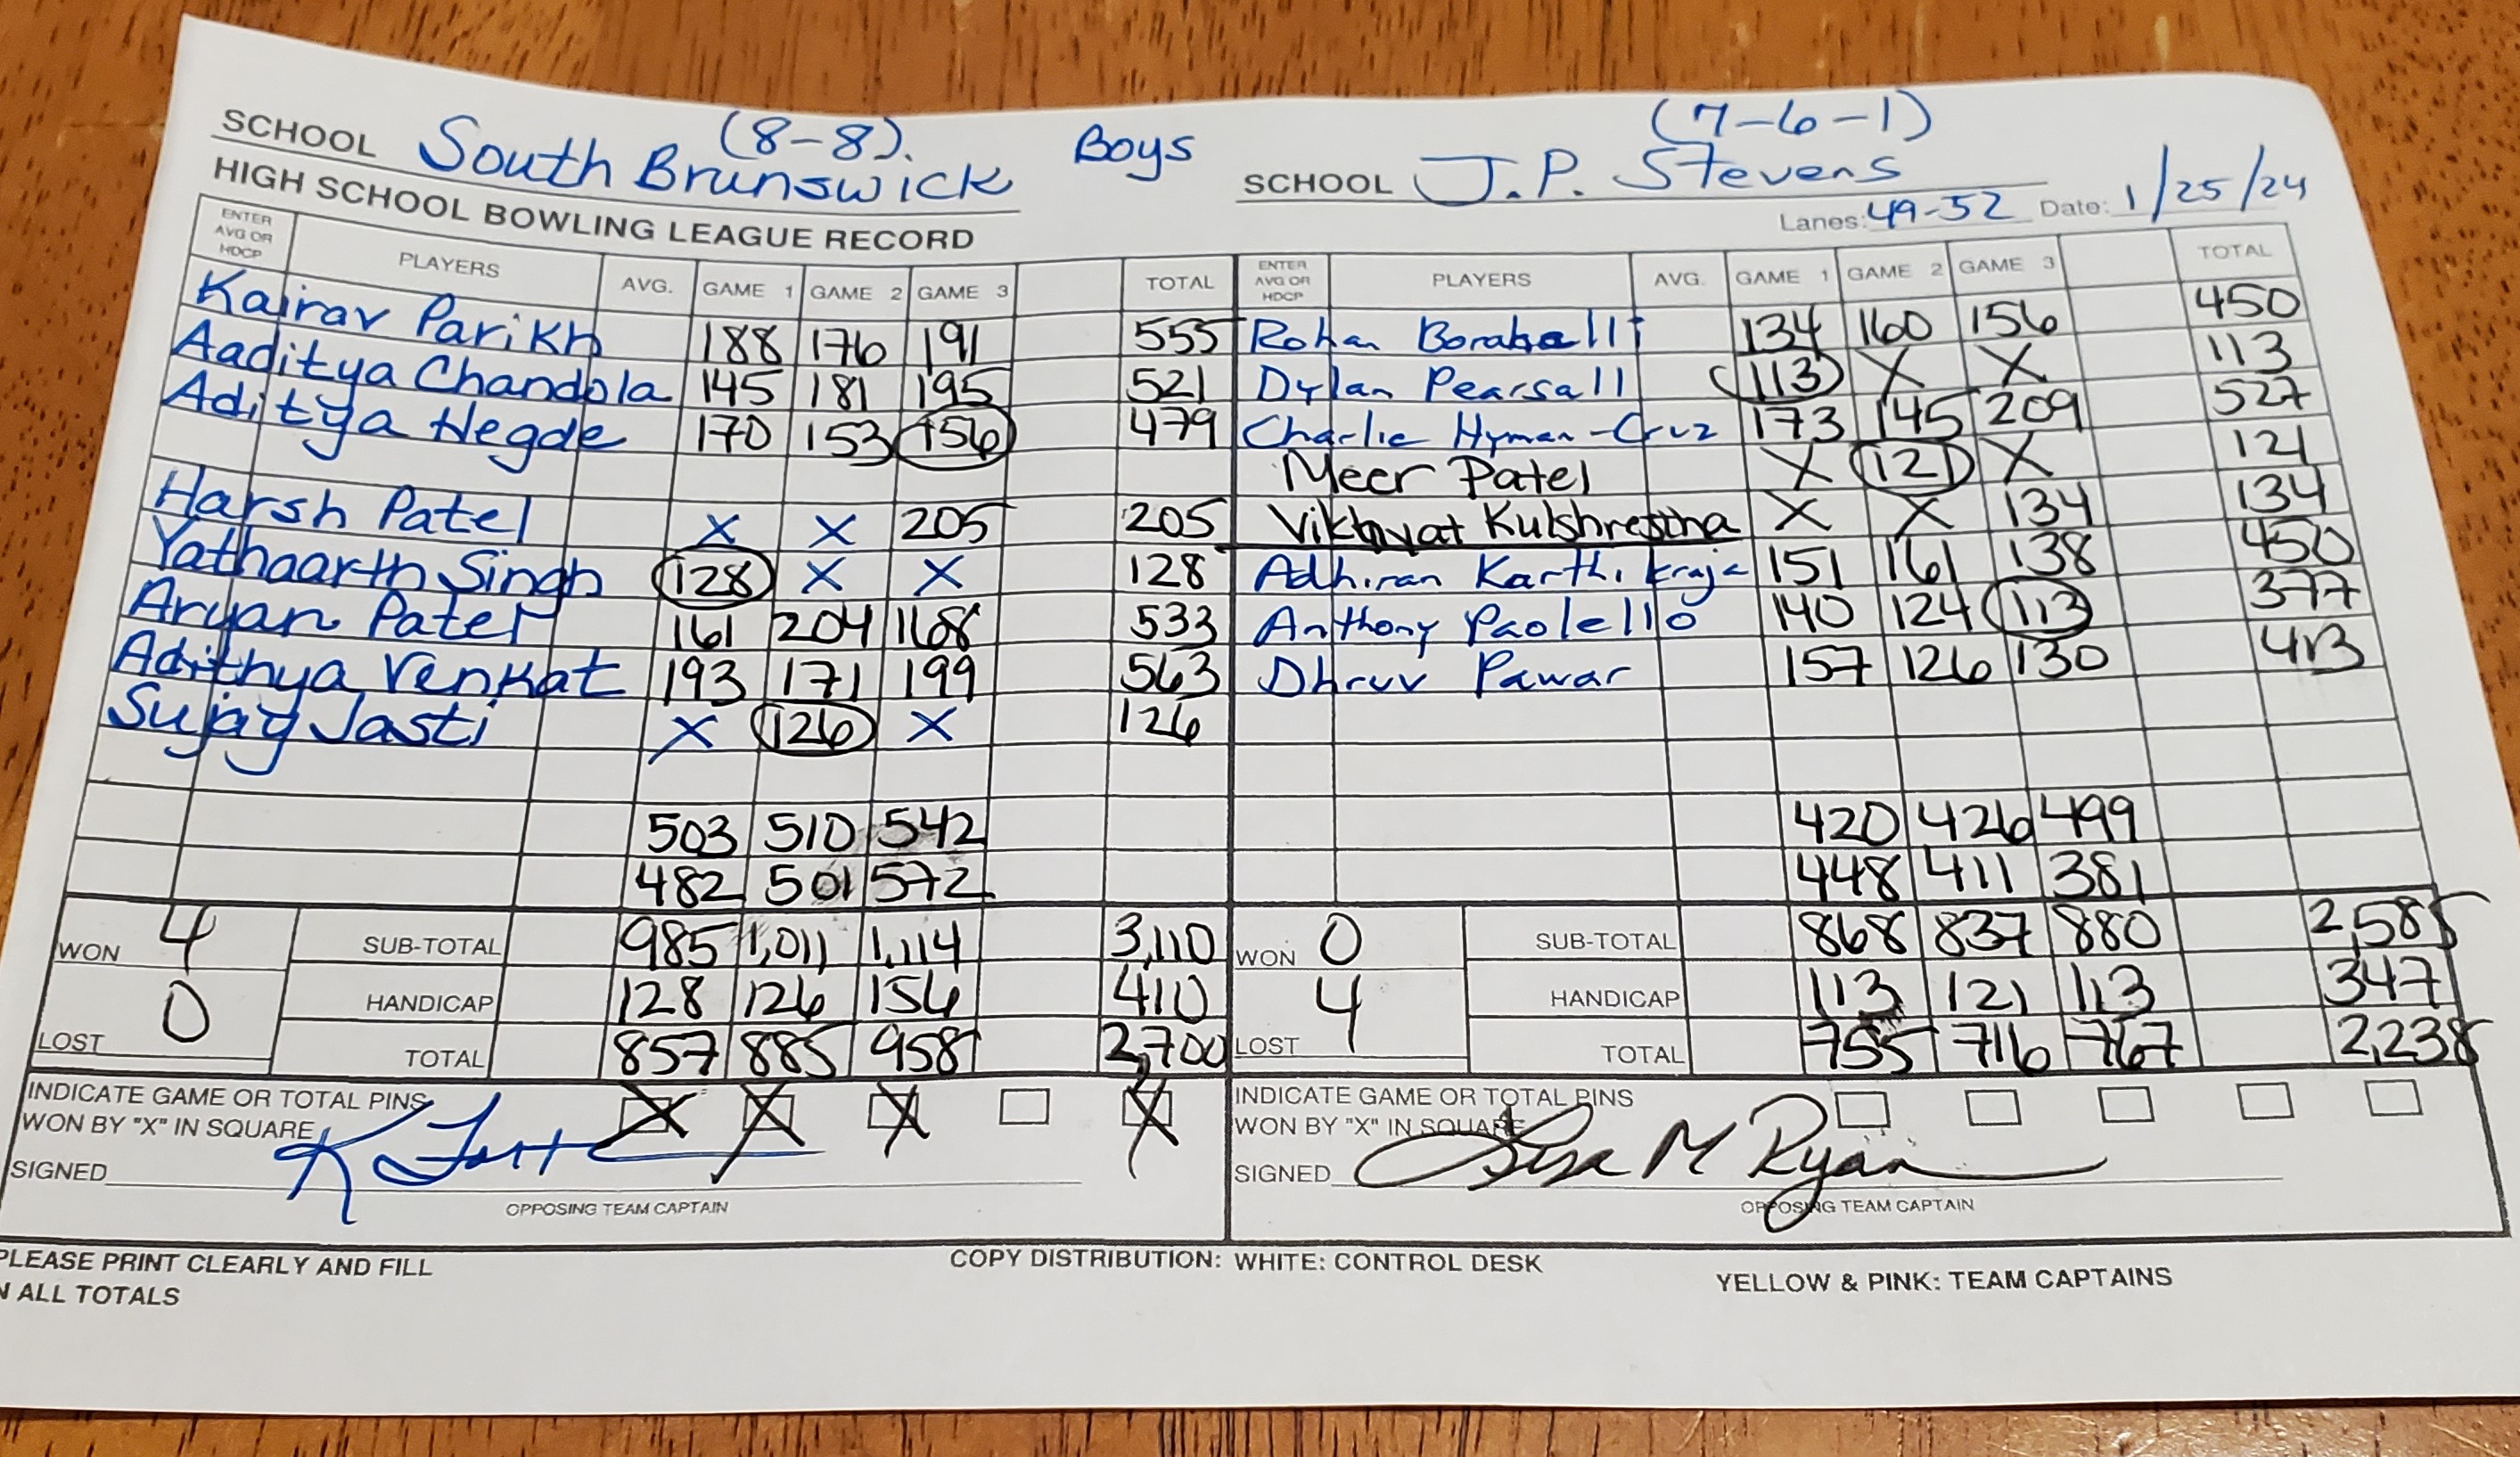 SCHOOL South Brunswick (8-8). Boys
SCHOOL J.P. Stevens (7-6-1)
HIGH SCHOOL BOWLING LEAGUE RECORD
Lanes: 49-52 Date: 1/25/24
ENTER AVG OR HDCP PLAYERS AVG. GAME 1 GAME 2 GAME 3 TOTAL
Kairav Parikh 188 176 191 555
Aaditya Chandola 145 181 195 521
Aditya Hegde 170 153 156 479
Harsh Patel X X 205 205
Yathaarth Singh 128 X X 128
Aryan Patel 161 204 168 533
Adithya Venkat 193 171 199 563
Sujay Jasti X 126 X 126
503 510 542
482 501 572
WON 4
LOST 0
SUB-TOTAL 985 1,011 1,114 3,110
HANDICAP 128 126 156 410
TOTAL 857 885 958 2,700
INDICATE GAME OR TOTAL PINS
WON BY "X" IN SQUARE X X X X
SIGNED
OPPOSING TEAM CAPTAIN
ENTER AVG OR HDCP PLAYERS AVG. GAME 1 GAME 2 GAME 3 TOTAL
Rohan 134 160 156 450
Dylan Pearsall 113 X X 113
Charlie Hyman-Cruz 173 145 209 527
Meer Patel X 121 X 121
Vikhyat Kulshrestha X X 134 134
Adhiran 151 161 138 450
Anthony Paolello 140 124 113 377
Dhruv Pawar 157 126 130 413
420 426 499
448 411 381
WON 0
LOST 4
SUB-TOTAL 868 837 880 2,585
HANDICAP 113 121 113 347
TOTAL 755 716 767 2,238
INDICATE GAME OR TOTAL PINS
WON BY "X" IN SQUARE
SIGNED Lisa M Ryan
OPPOSING TEAM CAPTAIN
PLEASE PRINT CLEARLY AND FILL
N ALL TOTALS
COPY DISTRIBUTION: WHITE: CONTROL DESK
YELLOW & PINK: TEAM CAPTAINS